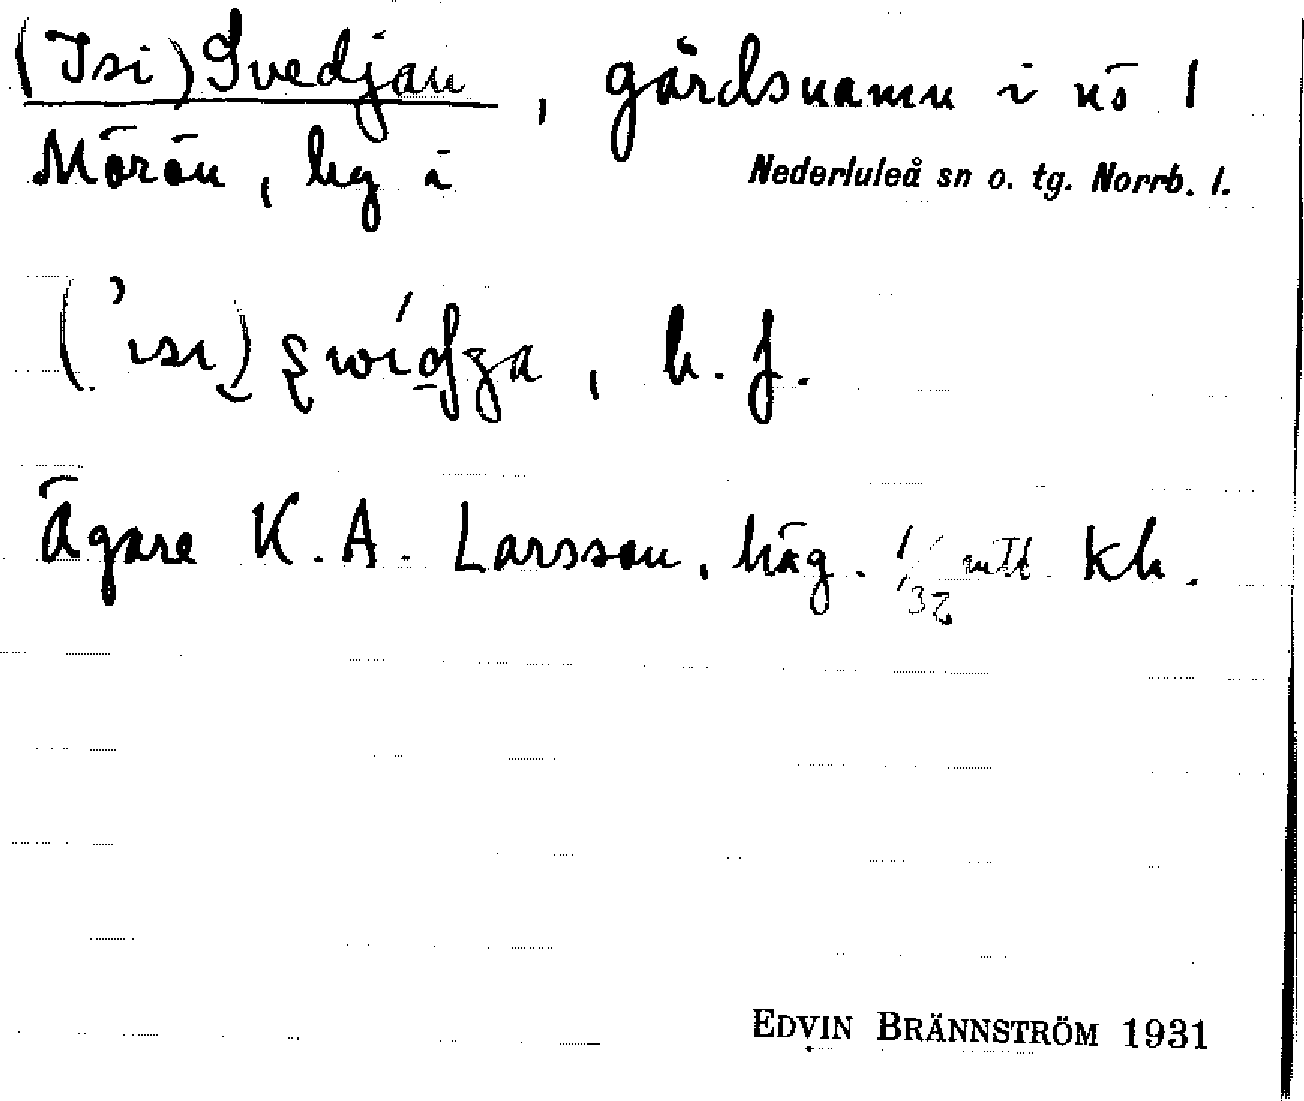 (Isi) Svedjan, gårdsnamn i nö 1
Mörön, by i Nederluleå sn o. tg. Norrb. l.
Ägare K. A. Larsson, häg. 1/32 mtl kh.
EDVIN BRÄNNSTRÖM 1931